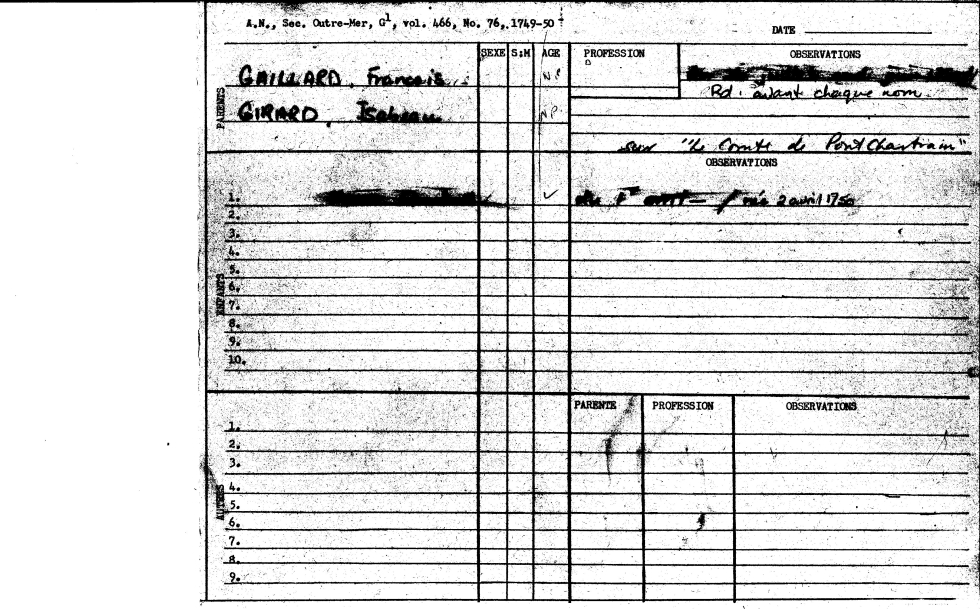 A.N., Sec. Outre-Mer, G1, vol. 466, No. 76, 1749-50
DATE
SEXE S:M AGE PROFESSION OBSERVATIONS
PARENTS
GAILLARD, Francois NP
Rd. avant chaque nom.
GIRARD, Isabeau NP
sur "Le Comte de PontChartrain"
OBSERVATIONS
ENFANTS
1. née 2 avril 1750
2.
3.
4.
5.
6.
7.
8.
9.
10.
PARENTE PROFESSION OBSERVATIONS
AUTRES
1.
2.
3.
4.
5.
6.
7.
8.
9.